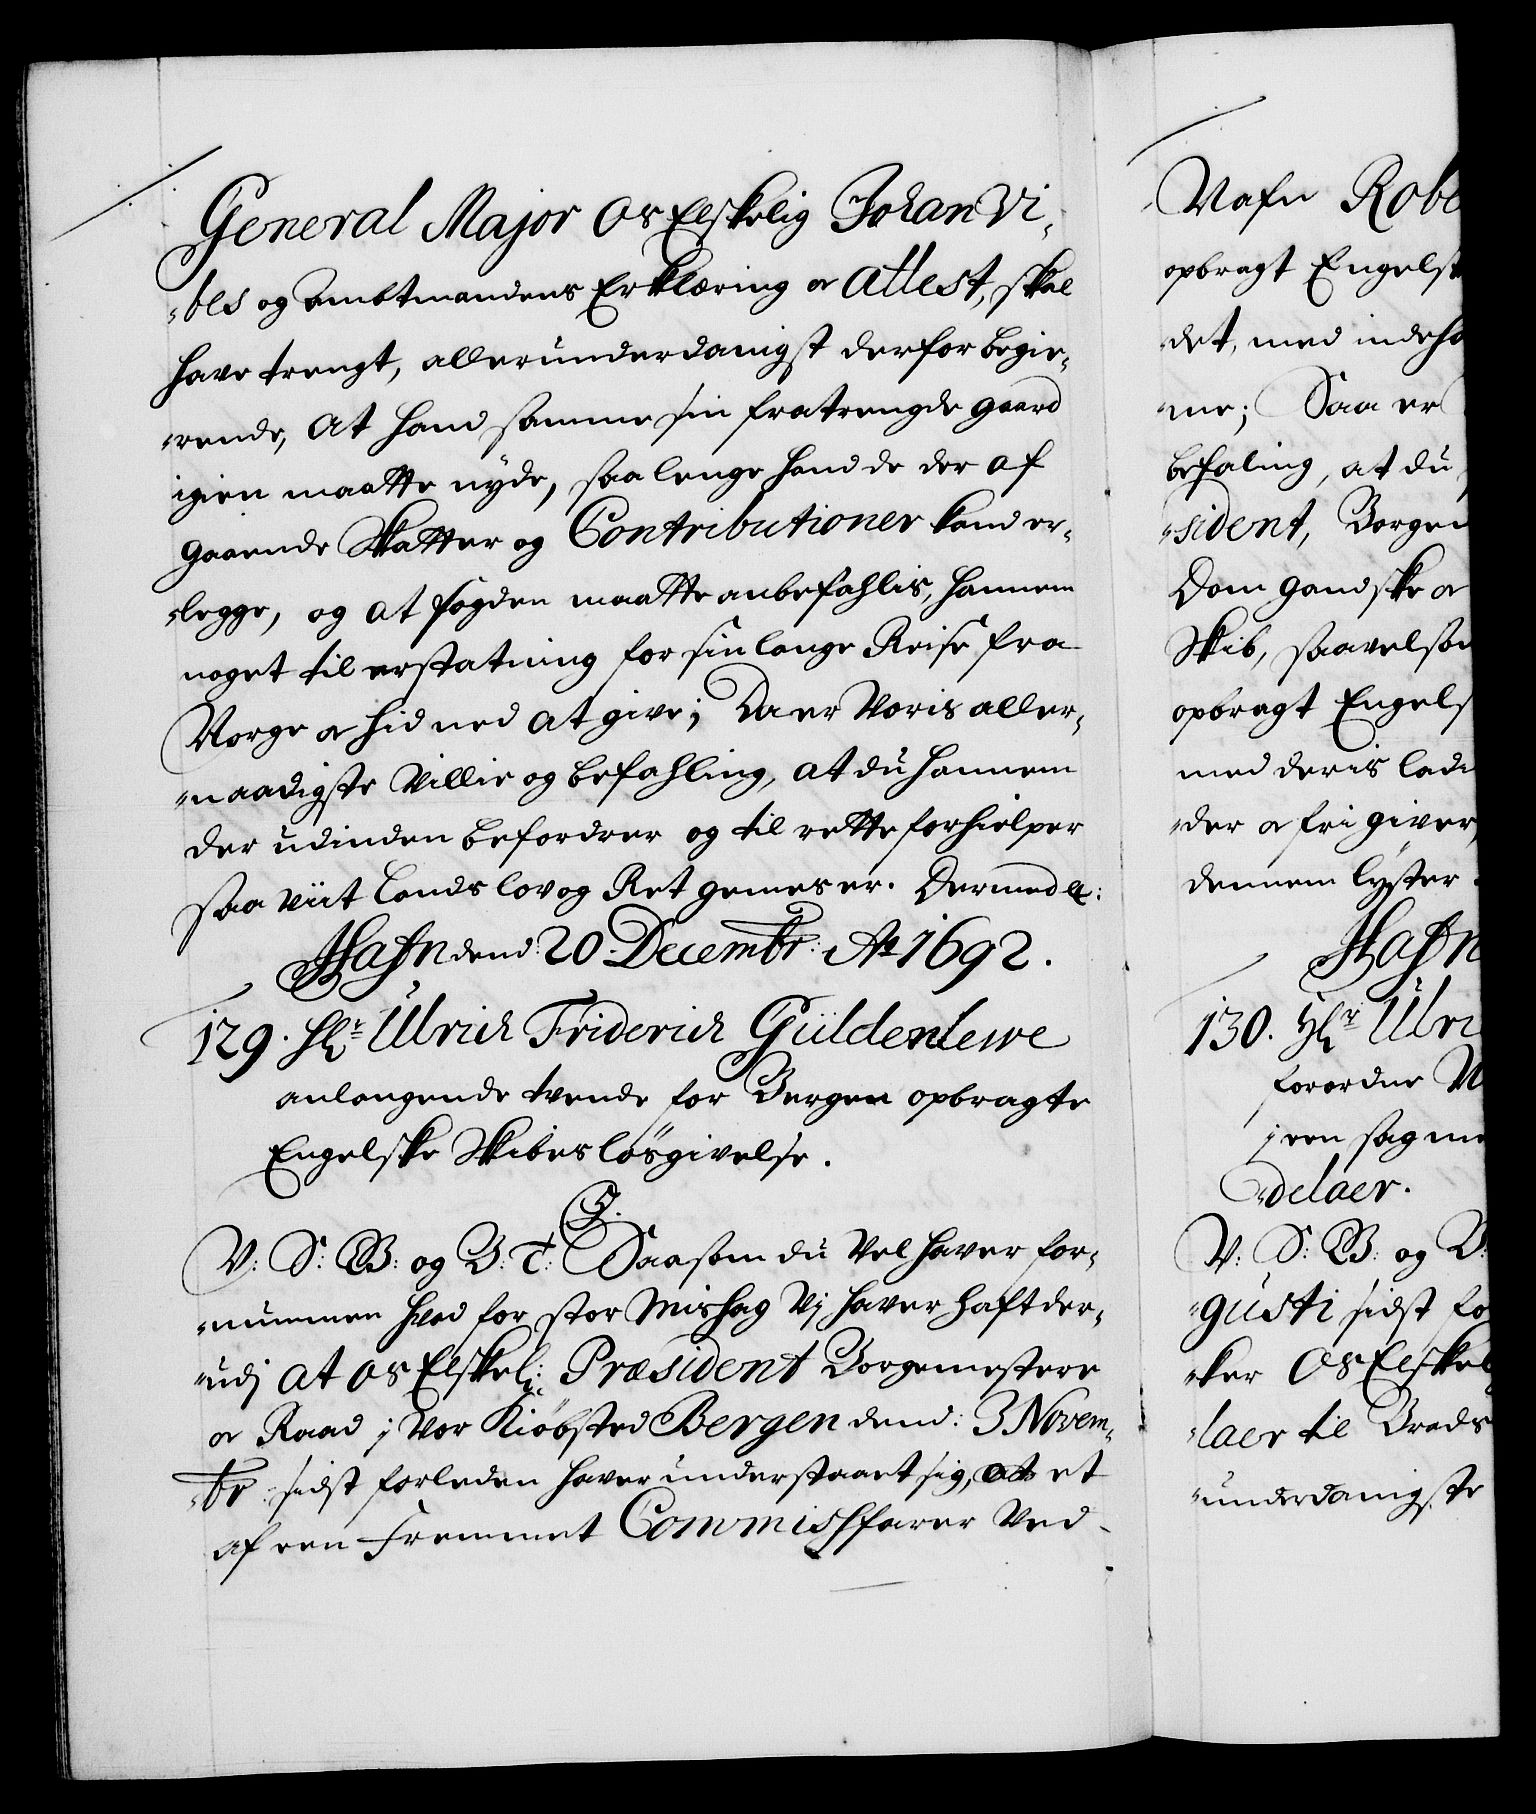 General Major Os Elskelig Johan Vi-
-bes og Ambtmandens Erklæring or Attest, skal
have trengt, allerunderdanigst derfor begie-
-rende, At hand samme sin fratrengde gaard
igien maatte nyde, saa lenge hand de der af
gaaende Skatter og Contributioner kand er-
-legge, og at fogden maatte anbefahlis, hannem
noget til erstatning for sin lange Reise fra
Norge or hid ned at give; Da er Voris aller-
-naadigste Villie og befahling, at du hannem
der udinden befordrer og til rette forhielper
saa viit Lands lov og Ret gemes er. Dermed &:
Hafn dend: 20. Decembr: Ao 1692.
129. Hr Ulrich Friderich Güldenlewe
anlangende tvende for Bergen opbragte
Engelske Skibes løsgivelse.
C5.
V: S: G B: og B: T: Saasom du vel haver for-
-nummen hvad for stor Mishag Vj haver haft der-
-udj at os Elskel: Præsident Borgemestere
or Raad j vor Kiøbsted Bergen dend: 3 Novem-
-br: sidst forleden haver understaaet sig, at et
af een Fremmet Commissfarer Ved-
Nafn Robe
opbragt Engelsk
det, med indeha
-me; Saa er
befaling, at du
-sident, Borgem
Dom gandske or
Skib, saavelsom
opbragt Engels
med deris ladn
-der or fri giver,
dennem lyster.
Hafn
130. Hr Ulri
forordne
j een sag me
-delaer.
V: S: G B: og B:
-gusti sidst fo
-ker Os Elskel
-laer til Brads
-underdanigste